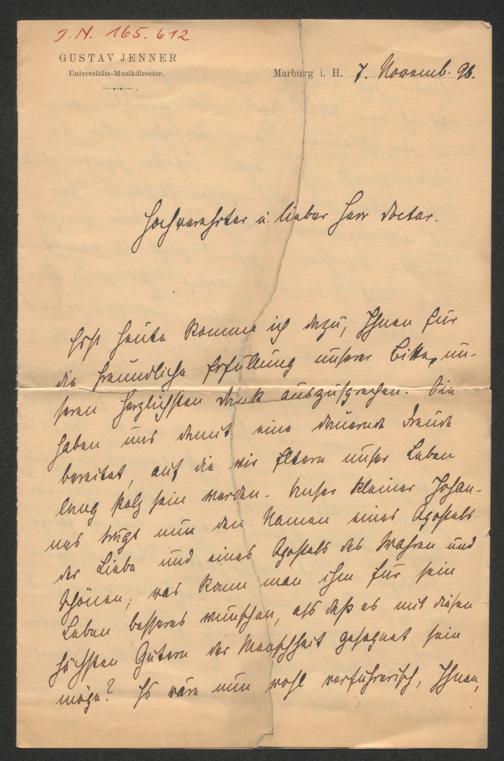 J. N. 165.612
GUSTAV JENNER
Universitäts-Musikdirector.
Marburg i. H. 7. Novemb. 96.
Hochverehrter u. lieber Herr Doctor.
Erst heute komme ich dazu, Ihnen für
die freundliche Erfüllung unserer Bitte, un-
seren herzlichsten Dank auszusprechen. Sie
haben uns damit eine dauernde Freude
bereitet, auf die wir Eltern unser Leben
lang stolz sein werden. Unser kleiner Johan-
nes trägt nun den Namen eines Apostels
der Liebe und eines Apostels des Wahren und
Schönen; was kann man ihm für sein
Leben besseres wünschen, als daß es mit diesen
höchsten Gütern der Menschheit gesegnet sein
möge? Es wäre nun wohl verführerisch, Ihnen,